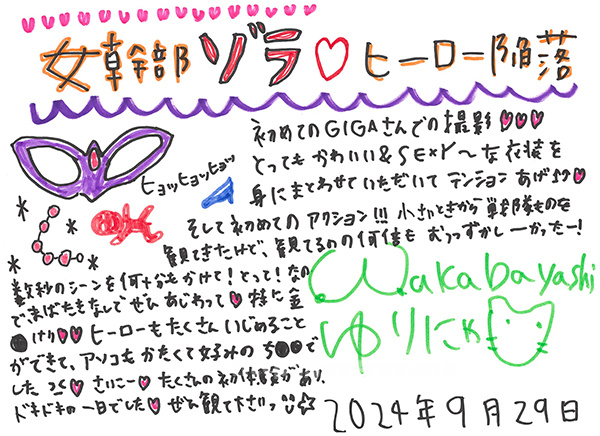 女幹部 ゾラ♡ヒーロー陥落
初めてのGIGAさんでの撮影♥♥♥
とってもかわいい&SEXY〜な衣装を
身にまとわせていただいて テンションあげ♪♪♥
ヒョッヒョッヒョッ
そして初めてのアクション!!! 小さいときから戦隊ものを
観てきたけど、観てるのの何倍もむっっずかしーかったー!
数秒のシーンを何十分もかけて!とって!なの
できばたきなしでぜんぶあじわって♥ 特に金
●けり♥♥ ヒーローもたくさんいじめること
ができて、アソコもかたくて好みのち●●で
した♥ さいこー♥ たくさんの初体験があり、
ドキドキの一日でした♥ ぜひ観て下さいっ☆
Wakabayashi
ゆりにゃ
2024年9月29日